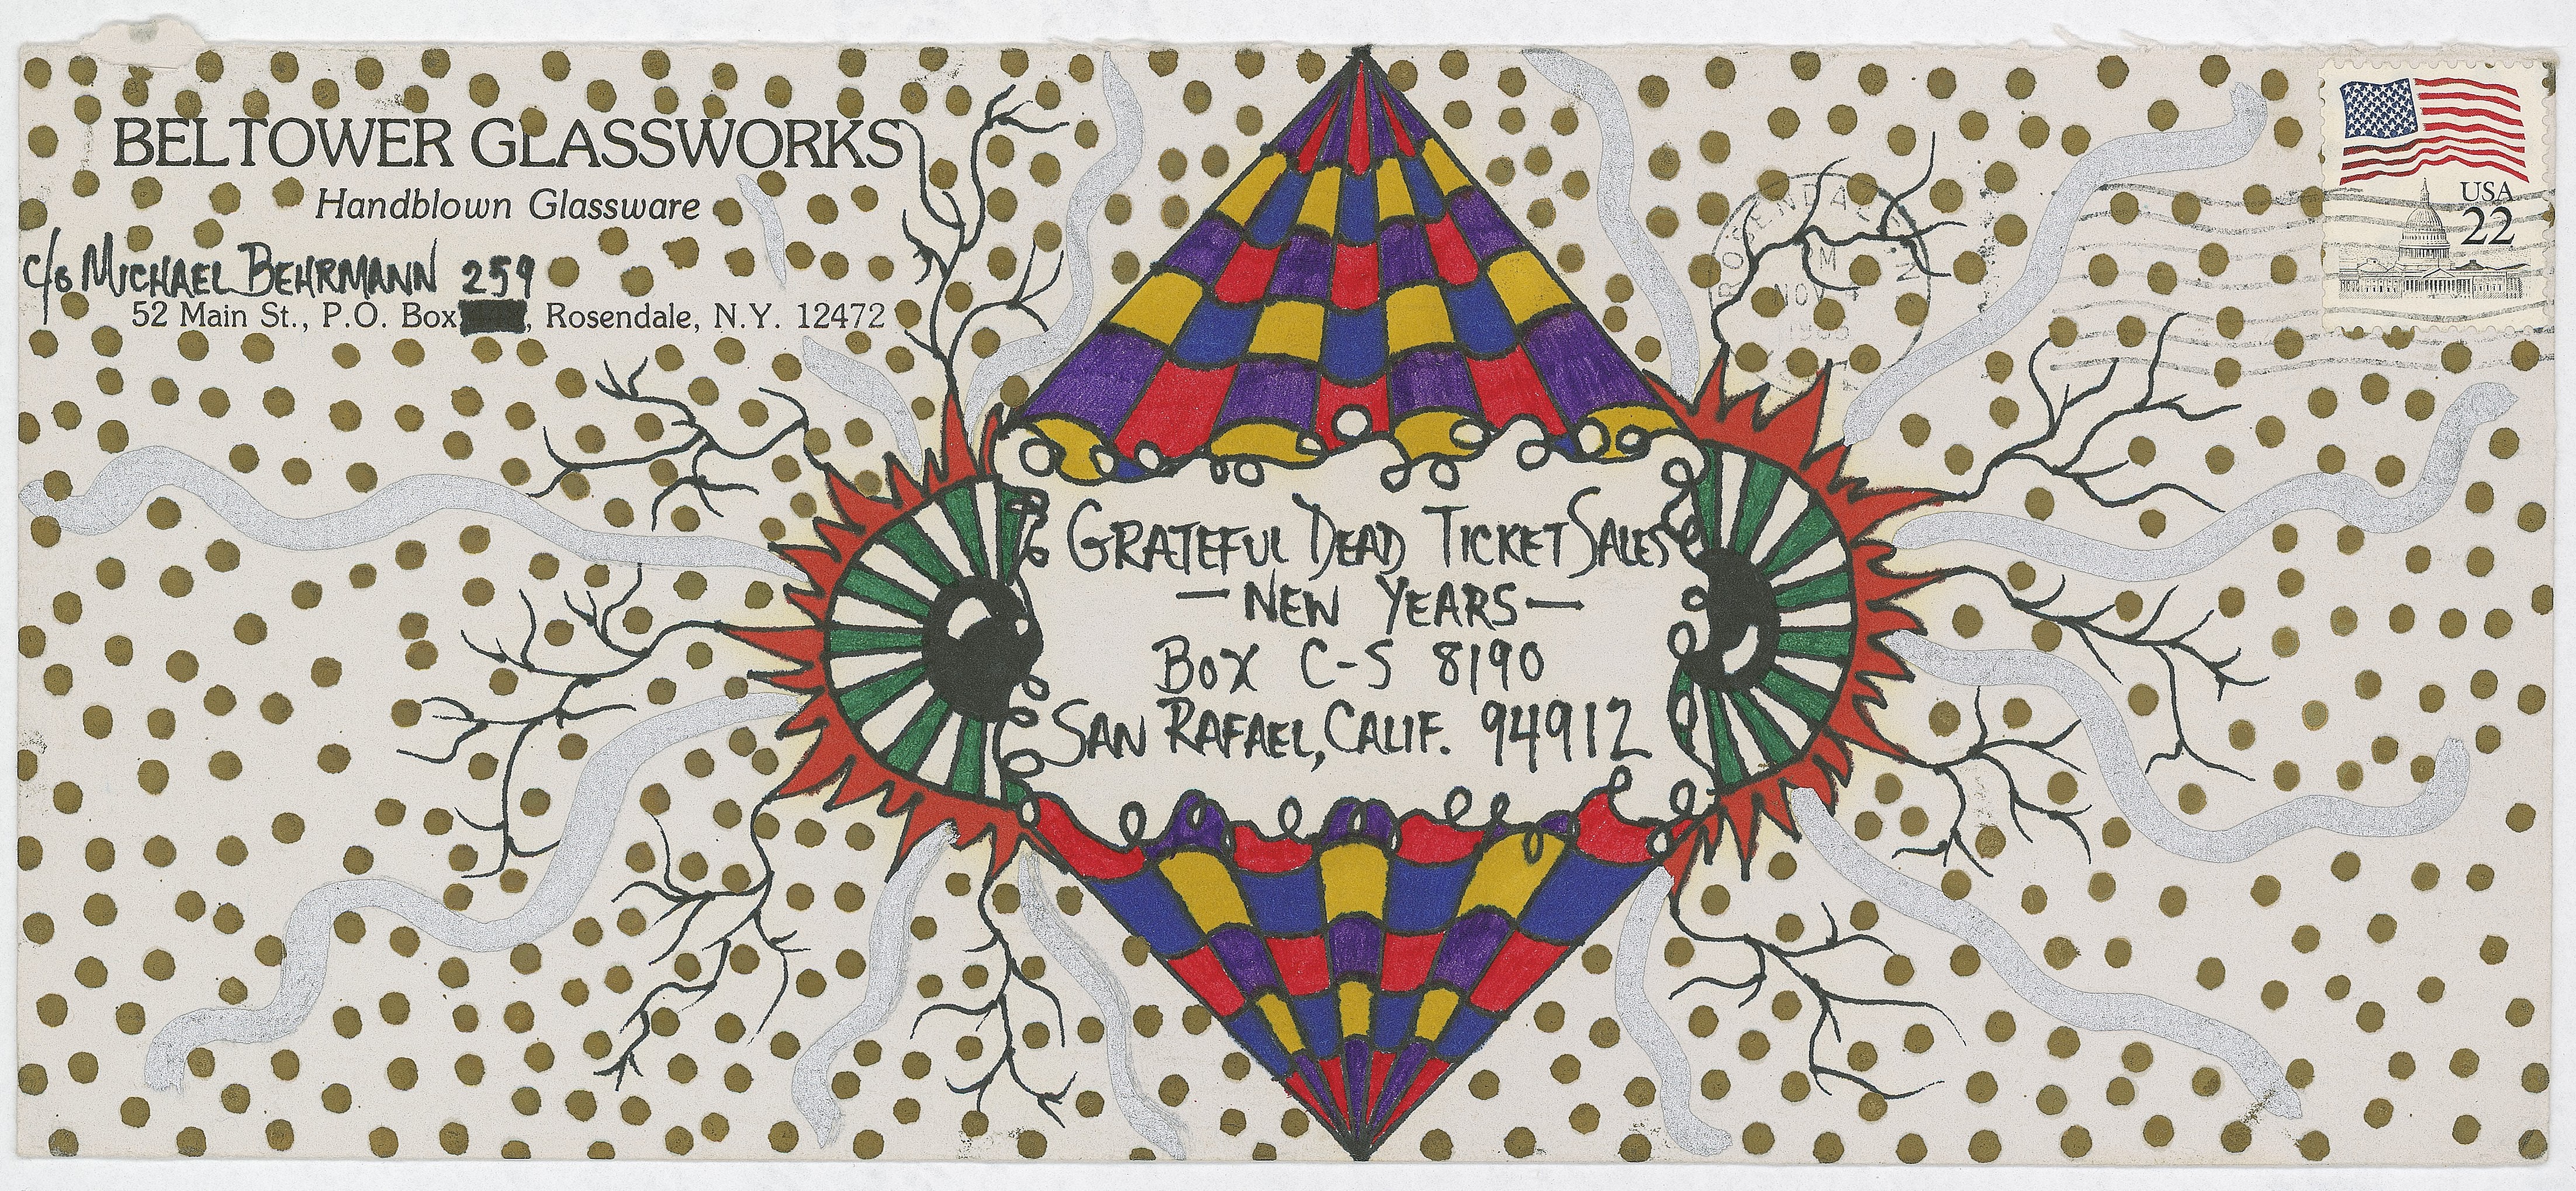 BELTOWER GLASSWORKS
Handblown Glassware
c/o MICHAEL BEHRMANN 259
52 Main St., P.O. Box , Rosendale, N.Y. 12472
USA
22
NOV
GRATEFUL DEAD TICKET SALES
— NEW YEARS —
BOX C-S 8190
SAN RAFAEL, CALIF. 94912